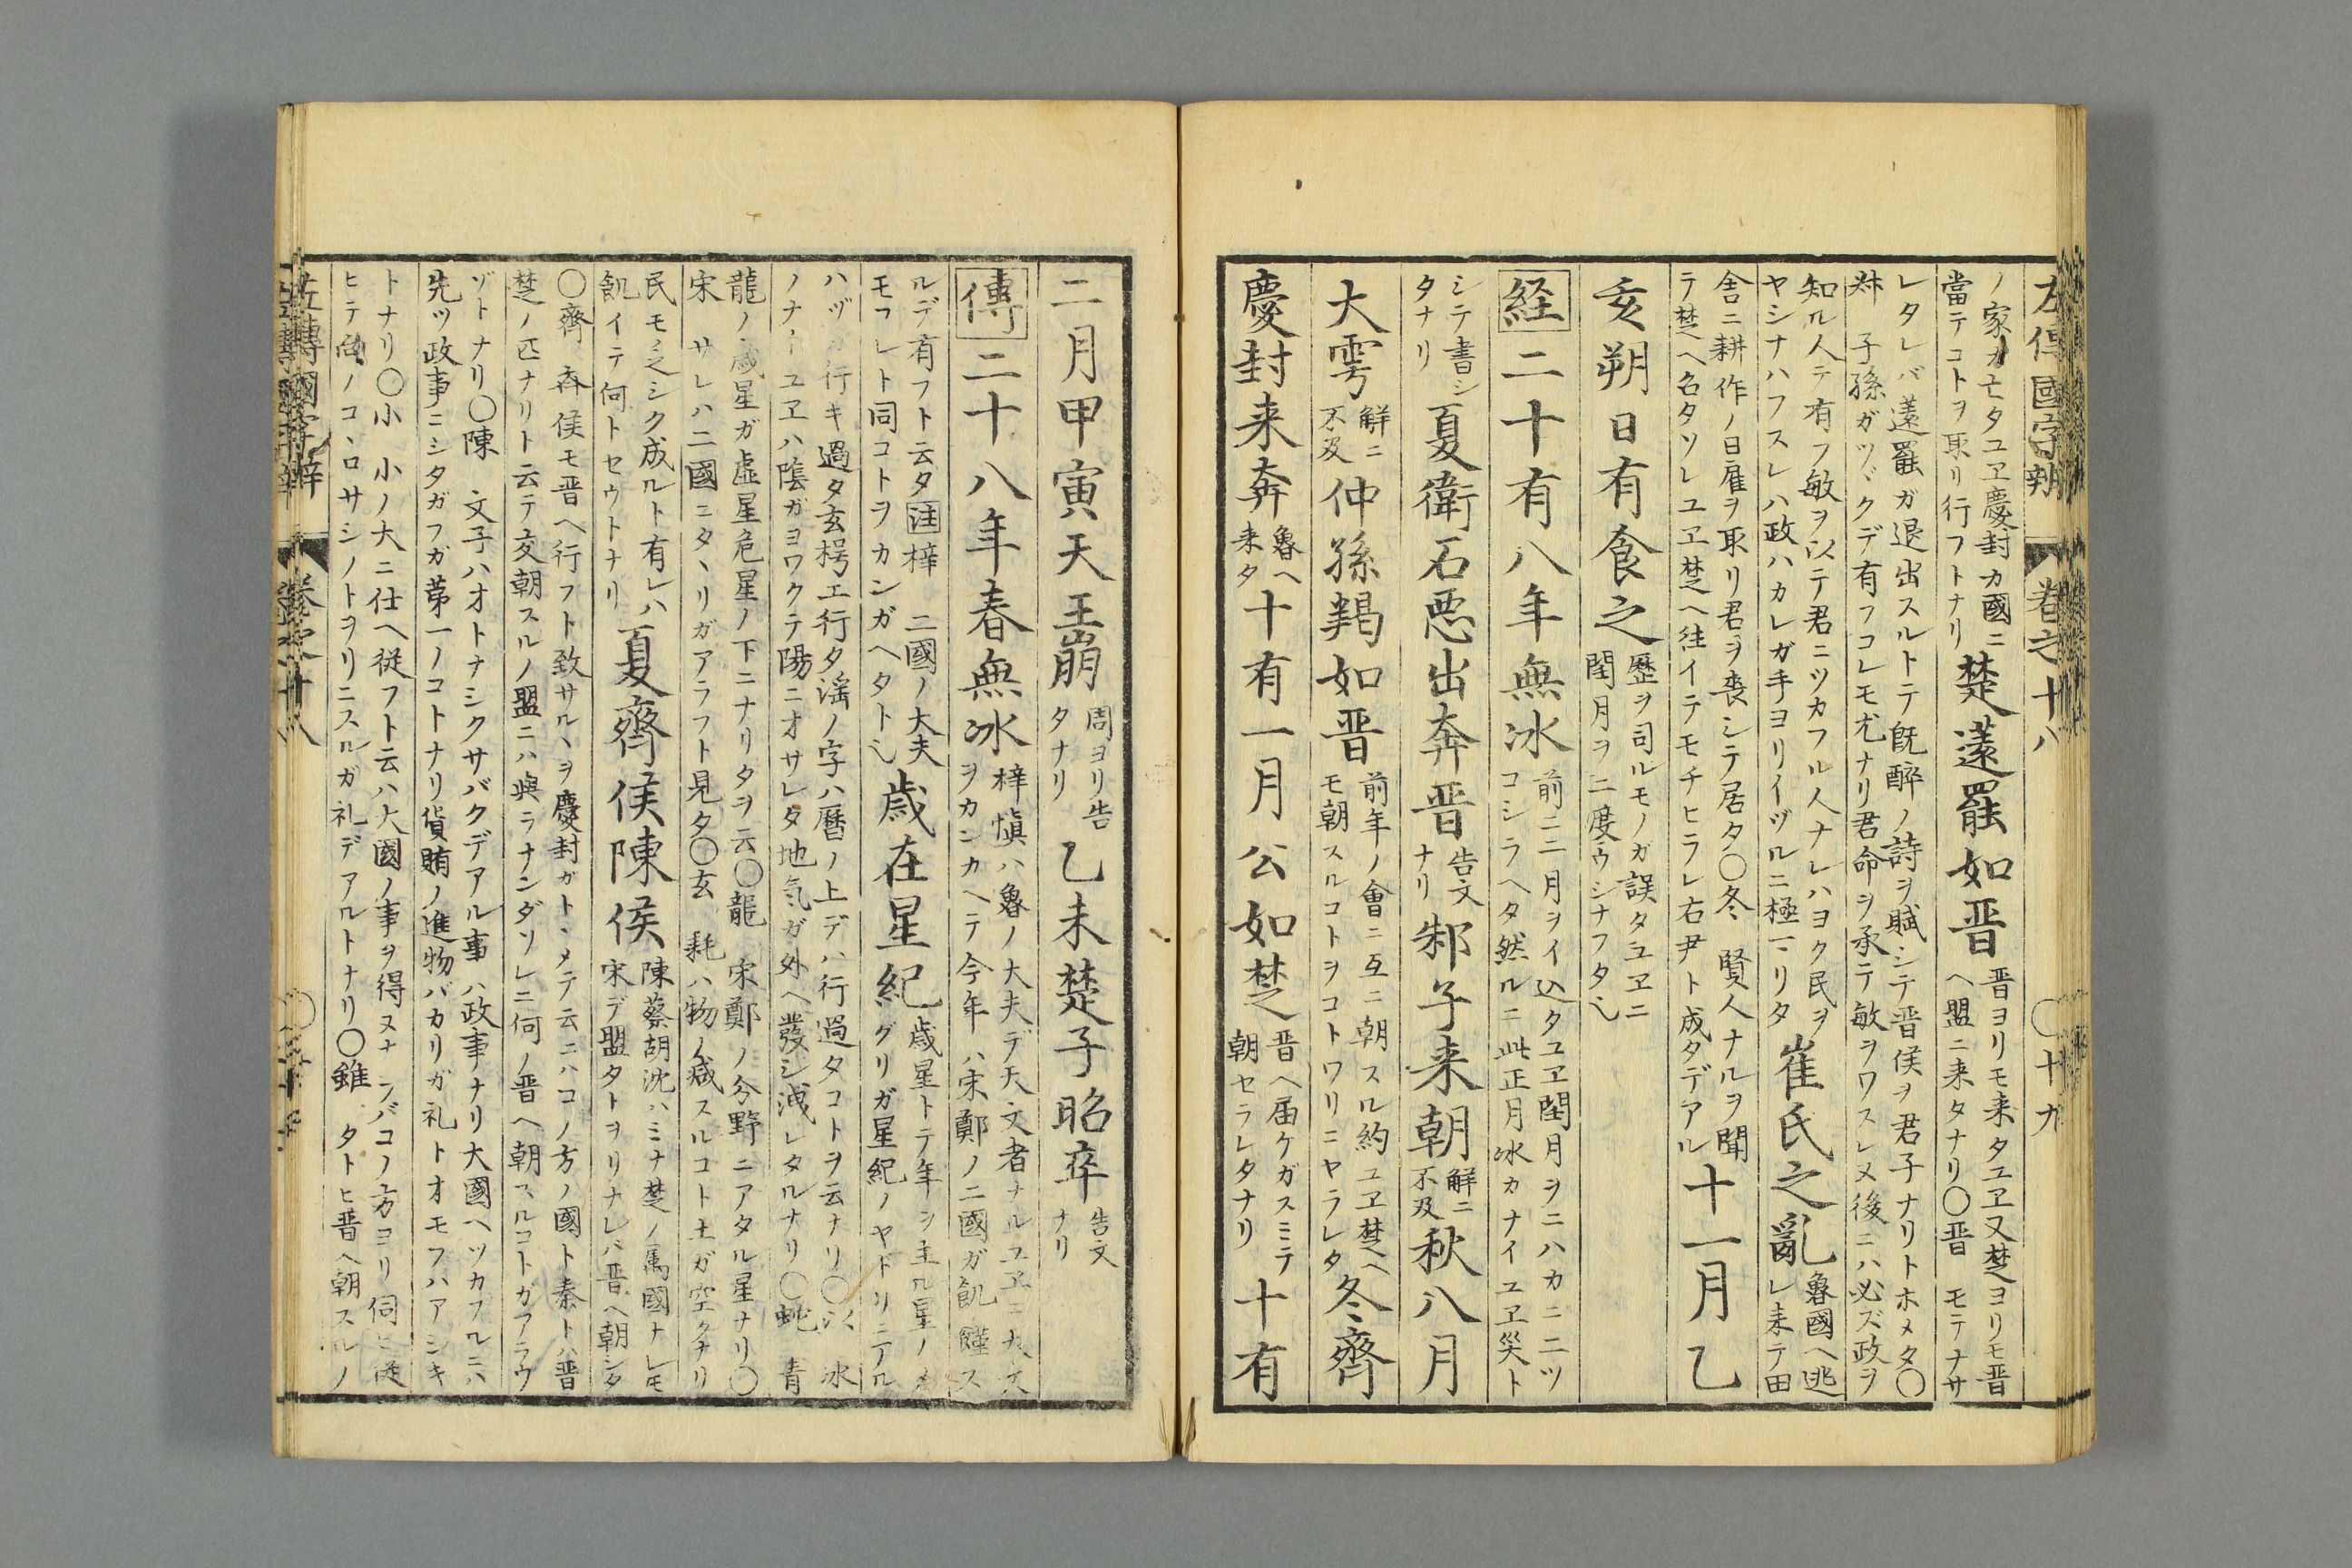 左傳國字辨 卷之十八 〇十九
ノ家カ亡タユヱ慶封カ國ニ
當テコトヲ取リ行フトナリ
楚薳罷如晋
晋ヨリモ来タユヱ又楚ヨリモ晋
ヘ盟ニ来タナリ〇晋 モテナサ
レタレバ薳罷ガ退出スルトテ既醉ノ詩ヲ賦シテ晋侯ヲ君子ナリトホメタ〇
子孫ガツヾクデ有フコレモ尤ナリ君命ヲ承テ敏ヲワスレヌ後ニハ必ズ政ヲ
知ル人テ有フ敏ヲ以テ君ニツカフル人ナレハヨク民ヲ
ヤシナハフスレハ政ハカレガ手ヨリイヅルニ極リタ
崔氏之亂
魯國ヘ逃
レ来テ田
舎ニ耕作ノ日雇ヲ取リ君ヲ喪シテ居タ〇冬 賢人ナルヲ聞
テ楚ヘ名タソレユヱ楚ヘ往イテモチヒラレ右尹ト成タデアル
十一月乙
亥朔日有食之
歴ヲ司ルモノガ誤タユヱニ
閏月ヲ二度ウシナフタ
経二十有八年無冰
前ニ二月ヲイ込タユヱ閏月ヲニハカニ二ツ
コシラヘタ然ルニ此正月冰カナイユヱ災ト
シテ書シ
タナリ
夏衛石惡出奔晋
告文
ナリ
邾子来朝
解ニ
不及
秋八月
大雩
解ニ
不及
仲孫羯如晋
前年ノ會ニ互ニ朝スル約ユヱ楚ヘ
モ朝スルコトヲコトワリニヤラレタ
冬齊
慶封来奔
魯ヘ
来タ
十有一月公如楚
晋ヘ届ケガスミテ
朝セラレタナリ
十有
二月甲寅天王崩
周ヨリ告
タナリ
乙未楚子昭卒
告文
ナリ
傳二十八年春無冰
梓愼ハ魯ノ大夫デ天文者ナルユヱニ天文
ヲカンカヘテ今年ハ宋鄭ノ二國ガ飢饉ス
ルデ有フト云タ注梓 二國ノ大夫
モフレト同コトヲカンガヘタト
歳在星紀
歳星トテ年ヲ主ル星ノメ
グリガ星紀ノヤドリニアル
ハヅガ行キ過タ玄枵エ行タ滛ノ字ハ暦ノ上デハ行過タコトヲ云ナリ〇以 冰
ノナイユヱハ陰ガヨワクテ陽ニオサレタ地気ガ外ヘ發シ洩レタルナリ〇蛇 青
龍ノ歳星ガ虚星危星ノ下ニナリタヲ云〇龍 宋鄭ノ分野ニアタル星ナリ〇
宋 サレハ二國ニタヽリガアラフト見タ〇玄 耗ハ物ノ减スルコト土ガ空クナリ
民モ乏シク成ルト有レハ
飢イテ何トセウトナリ
夏齊侯陳侯
陳蔡胡沈ハミナ楚ノ属國ナレモ
宋デ盟タトヲリナレバ晋ヘ朝シタ
〇齊 斉侯モ晋ヘ行フト致サルヽヲ慶封ガトヽメテ云ニハコノ方ノ國ト秦トハ晋
楚ノ匹ナリト云テ交朝スルノ盟ニハ與ラナンダソレニ何ノ晋ヘ朝スルコトガアラウ
ゾトナリ〇陳 文子ハオトナシクサバクデアル事ハ政事ナリ大國ヘツカフルニハ
先ツ政事ニシタガフガ第一ノコトナリ貨賄ノ進物バカリガ礼トオモフハアシキ
トナリ〇小 小ノ大ニ仕ヘ従フト云ハ大國ノ事ヲ得ヌナンバコノ方ヨリ伺ヒ従
ヒテ向ノコヽロサシノトヲリニスルガ礼デアルトナリ〇雖 タトヒ晋ヘ朝スルノ
左傳國字辨 卷之十八